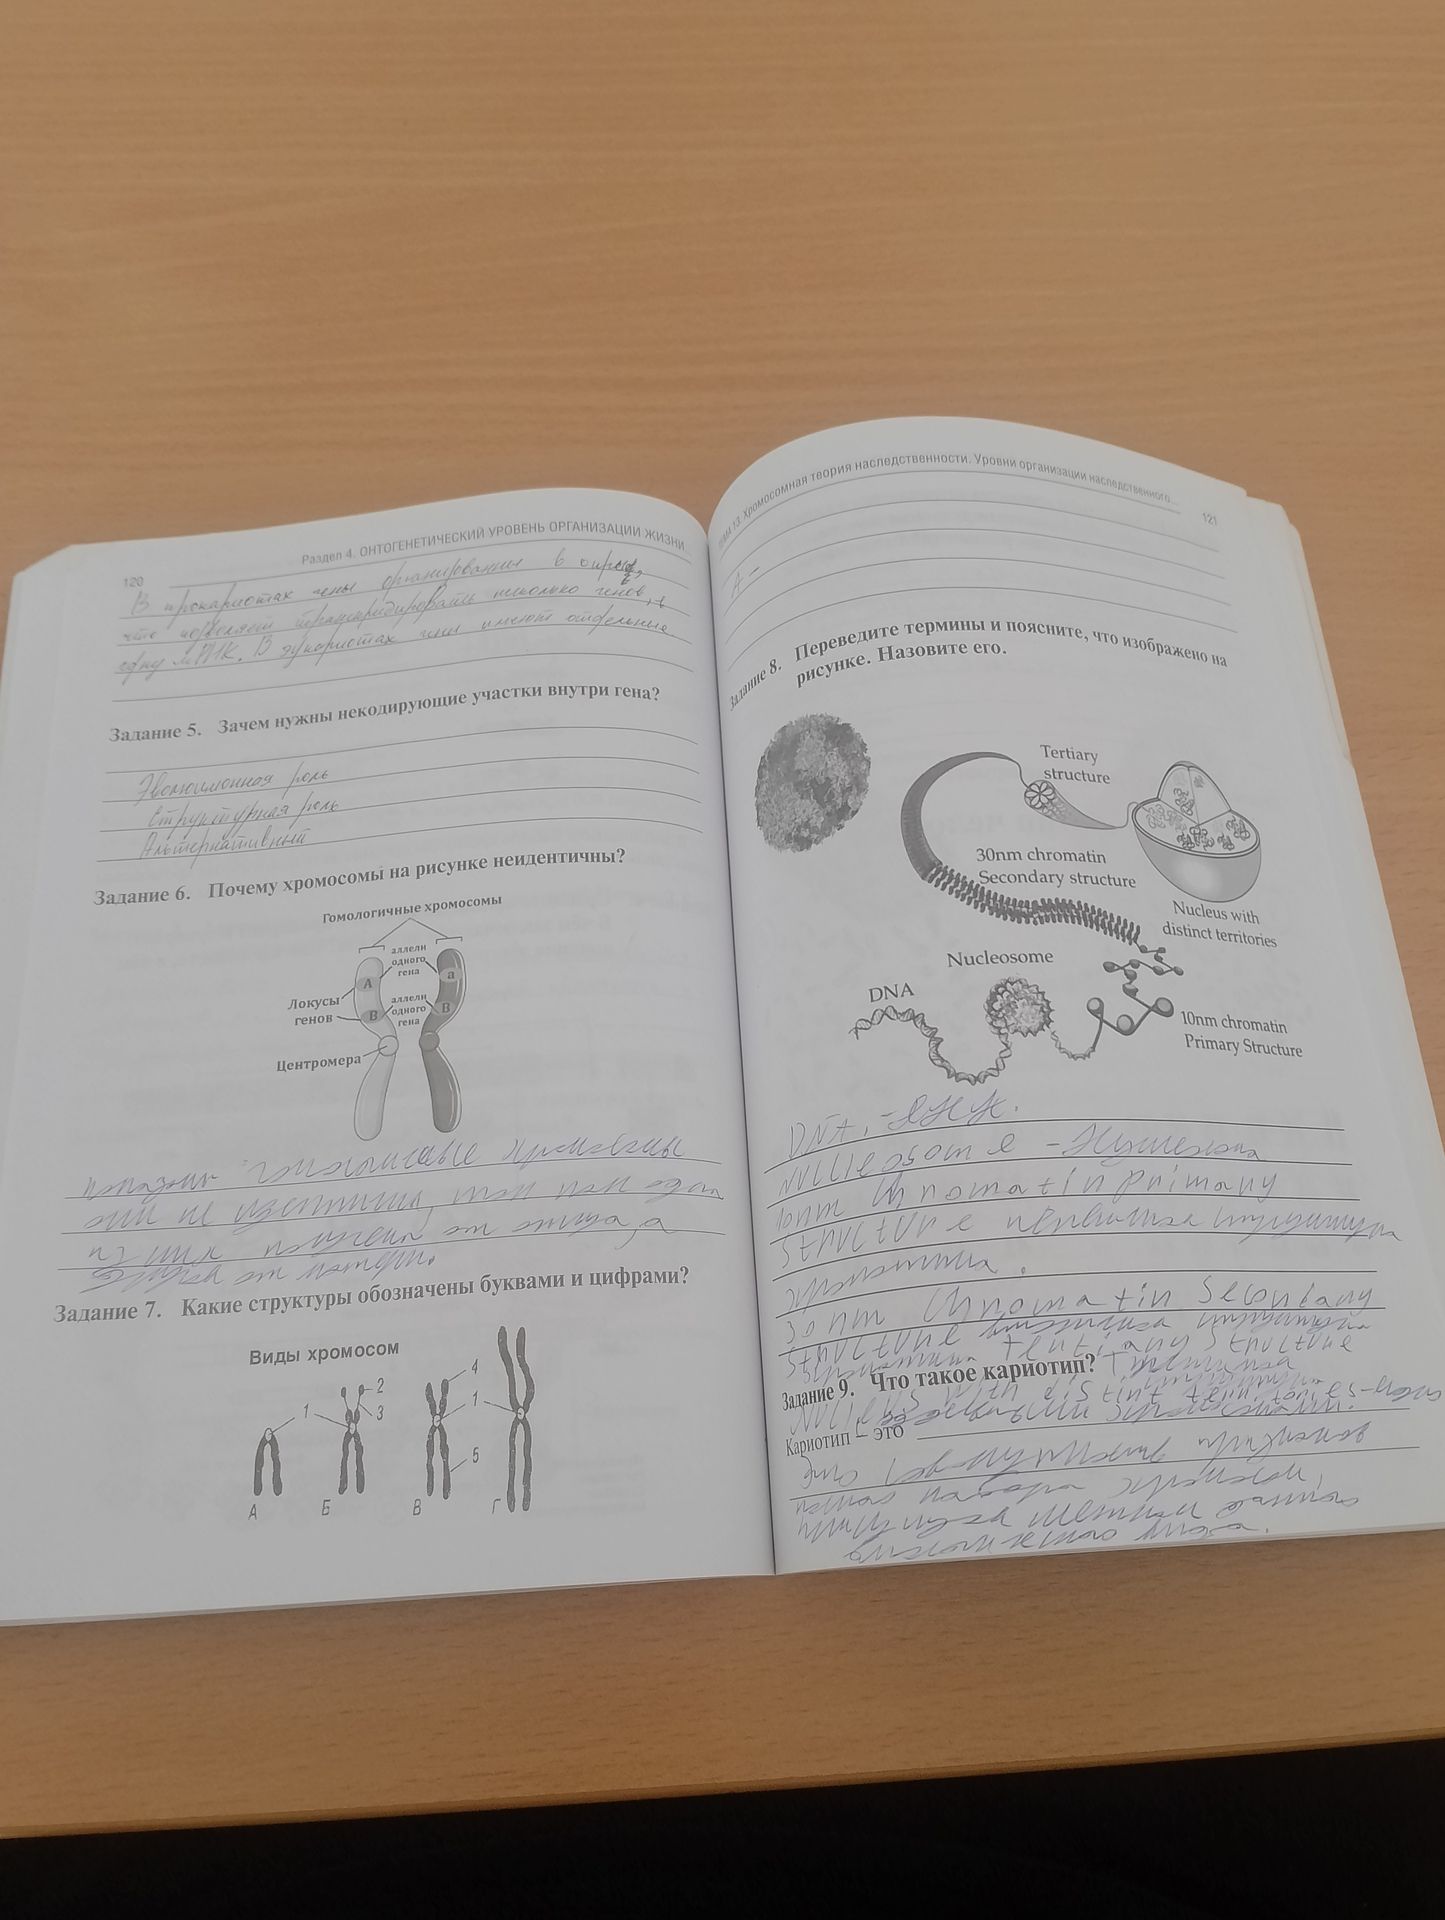 120
Раздел 4. ОНТОГЕНЕТИЧЕСКИЙ УРОВЕНЬ ОРГАНИЗАЦИИ ЖИЗНИ
В прокариотах гены
что позволяет транскрибировать несколько генов, в
одну мРНК. В эукариотах гены имеют отдельные
Задание 5. Зачем нужны некодирующие участки внутри гена?
Эволюционная роль
Структурная роль
Альтернативный
Задание 6. Почему хромосомы на рисунке неидентичны?
Гомологичные хромосомы
аллели
одного
гена
A
a
Локусы
генов
аллели
одного
гена
B
B
Центромера
гомологичные хромосомы
они не идентичны, так как один
из них получен от отца, а
другая от матери.
Задание 7. Какие структуры обозначены буквами и цифрами?
Виды хромосом
1
2
3
4
1
5
А
Б
В
Г
ТЕМА 13. Хромосомная теория наследственности. Уровни организации наследственного...
121
А –
Задание 8. Переведите термины и поясните, что изображено на
рисунке. Назовите его.
Tertiary
structure
30nm chromatin
Secondary structure
Nucleus with
distinct territories
Nucleosome
DNA
10nm chromatin
Primary Structure
DNA, - ДНК.
Nucleosome - Нуклеосома
10nm Chromatin primary
structure первичная структура
хроматина.
30 nm Chromatin Secondary
structure вторичная структура
хроматина tertiary structure
Задание 9. Что такое кариотип?
Nucleus with distinct territories
Кариотип – это